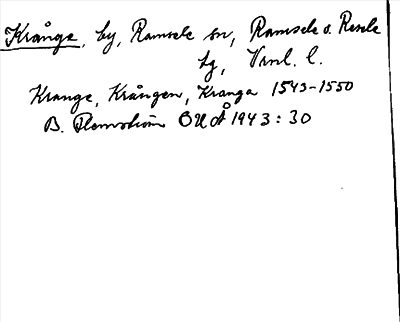 Krånge, by, Ramsele sn, Ramsele o. Resele
tg, Vnrl. l.
Krange, Krången, Kranga 1543-1550
B. Flemström OUÅ 1943: 30